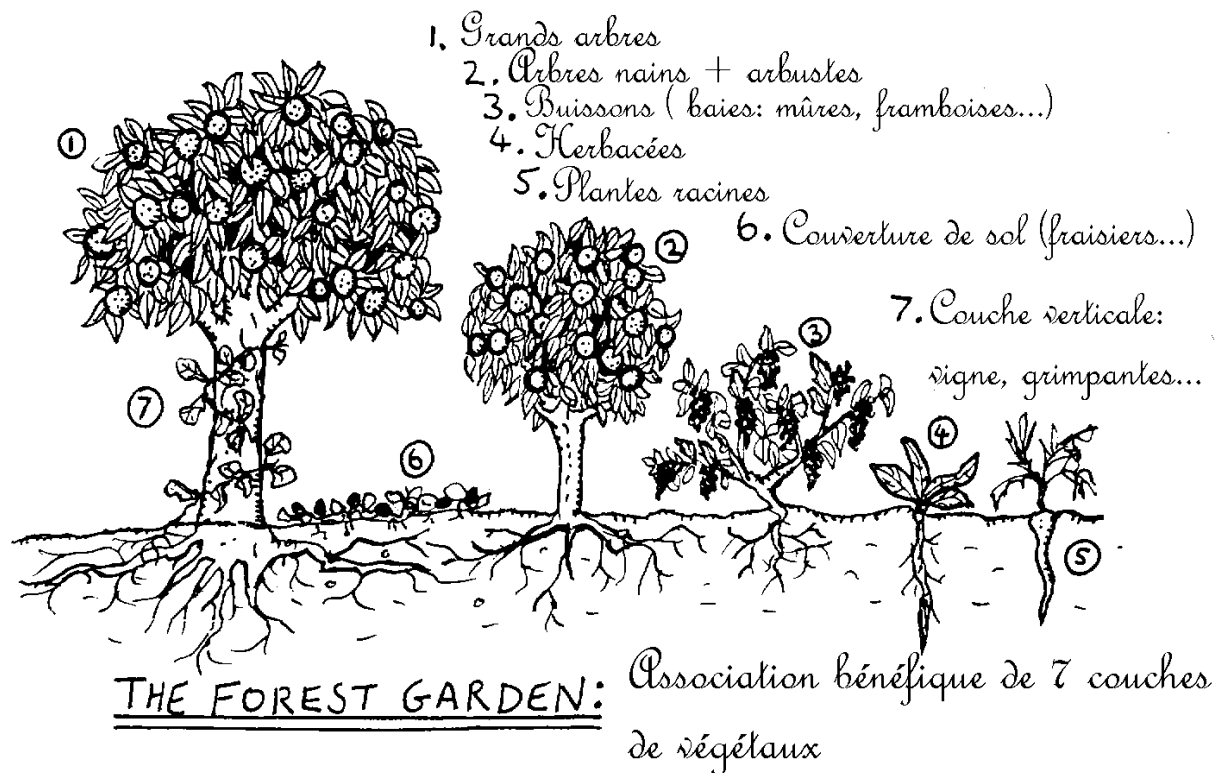 1. Grands arbres
2. Arbres nains + arbustes
3. Buissons (baies: mûres, framboises...)
4. Herbacées
5. Plantes racines
6. Couverture de sol (fraisiers...)
7. Couche verticale:
vigne, grimpantes...
1
2
3
7
4
6
5
THE FOREST GARDEN: Association bénéfique de 7 couches
de végétaux